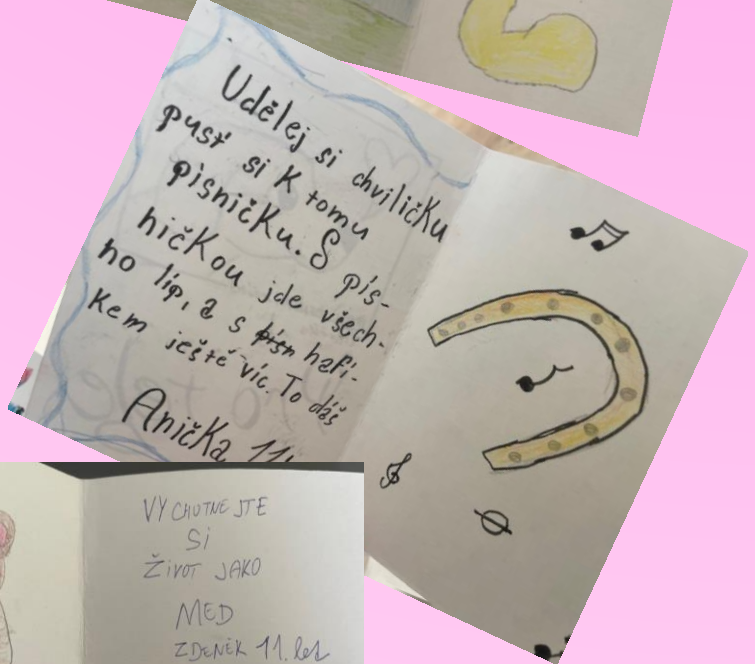 Udělej si chviličku
pusť si k tomu
písničku. S pís-
ničkou jde všech-
no líp, a s hafí-
kem ještě víc. To dáš
Anička 11
VYCHUTNEJTE
SI
ŽIVOT JAKO
MED
ZDENĚK 11. let